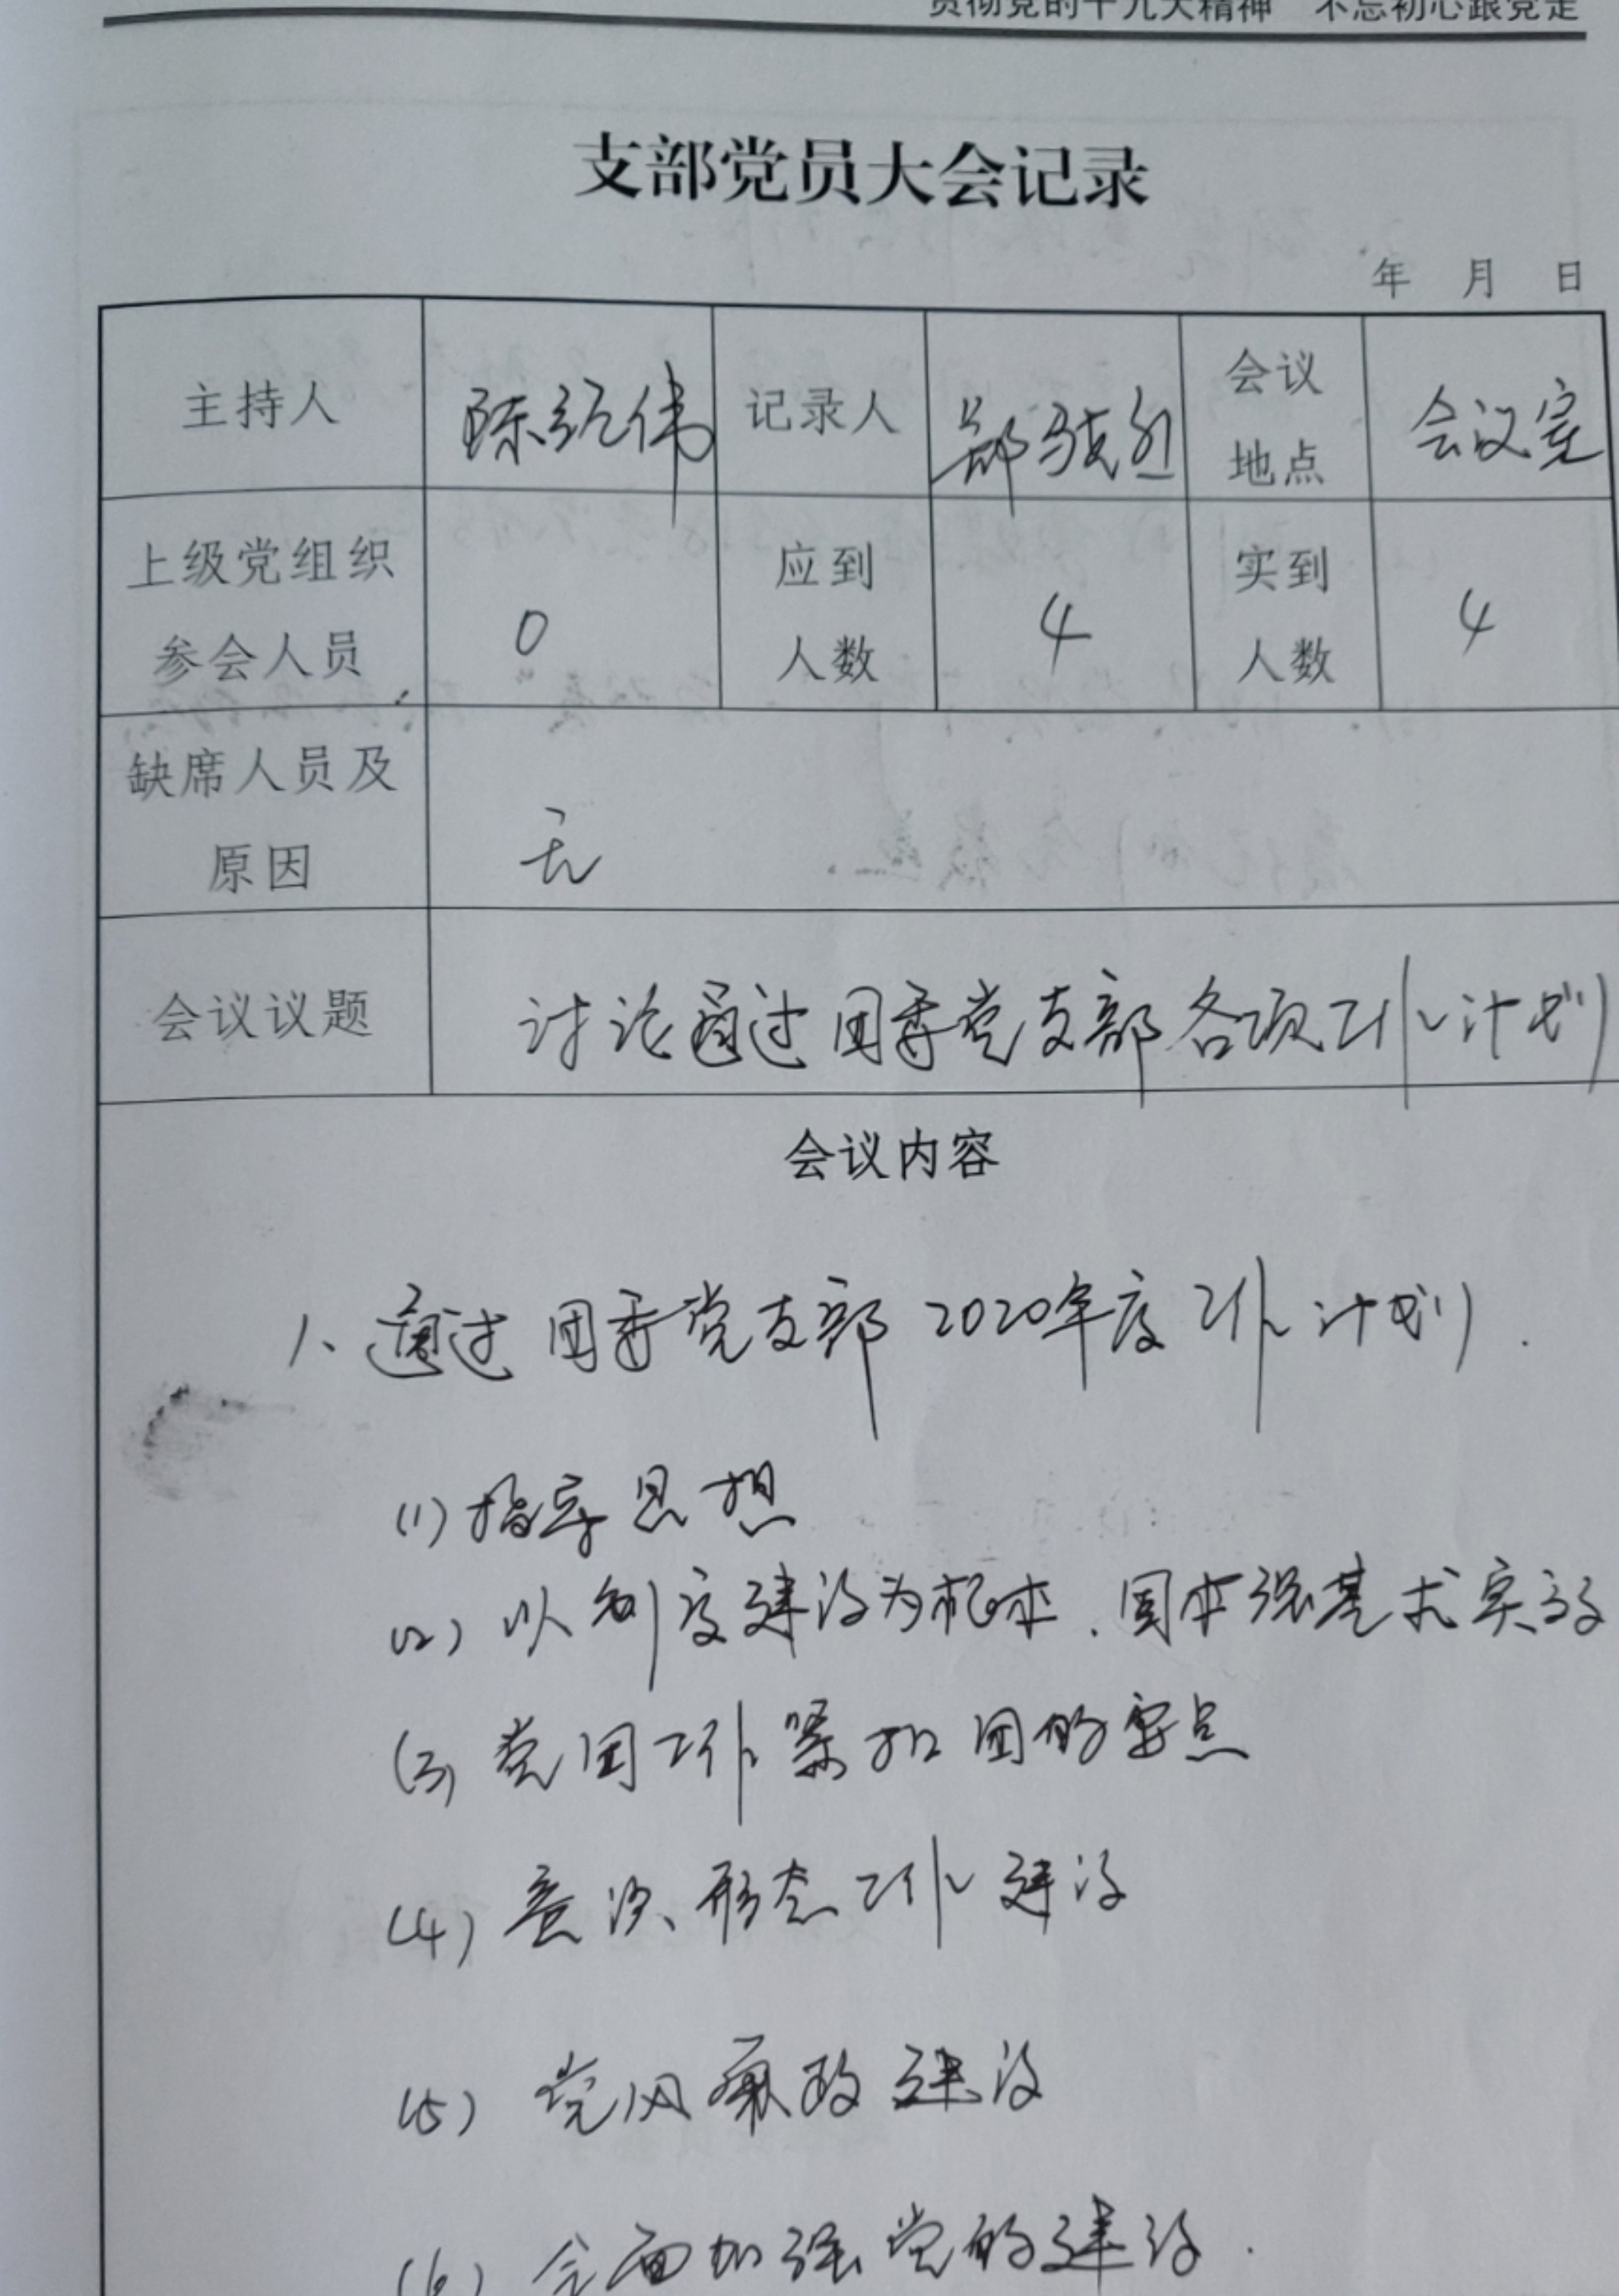 贯彻党的十九大精神 不忘初心跟党走
支部党员大会记录
年 月 日
主持人 陈绍伟 记录人 郑 会议地点 会议室
上级党组织参会人员 0 应到人数 4 实到人数 4
缺席人员及原因 无
会议议题 讨论通过团委党支部各项工作计划
会议内容
1、通过团委党支部2020年度工作计划.
(1)指导思想
(2)以制度建设为根本.固本强基求实效
(3)党团工作紧扣团的要点
(4)意识形态工作建设
(5)党风廉政建设
(6)全面加强党的建设.